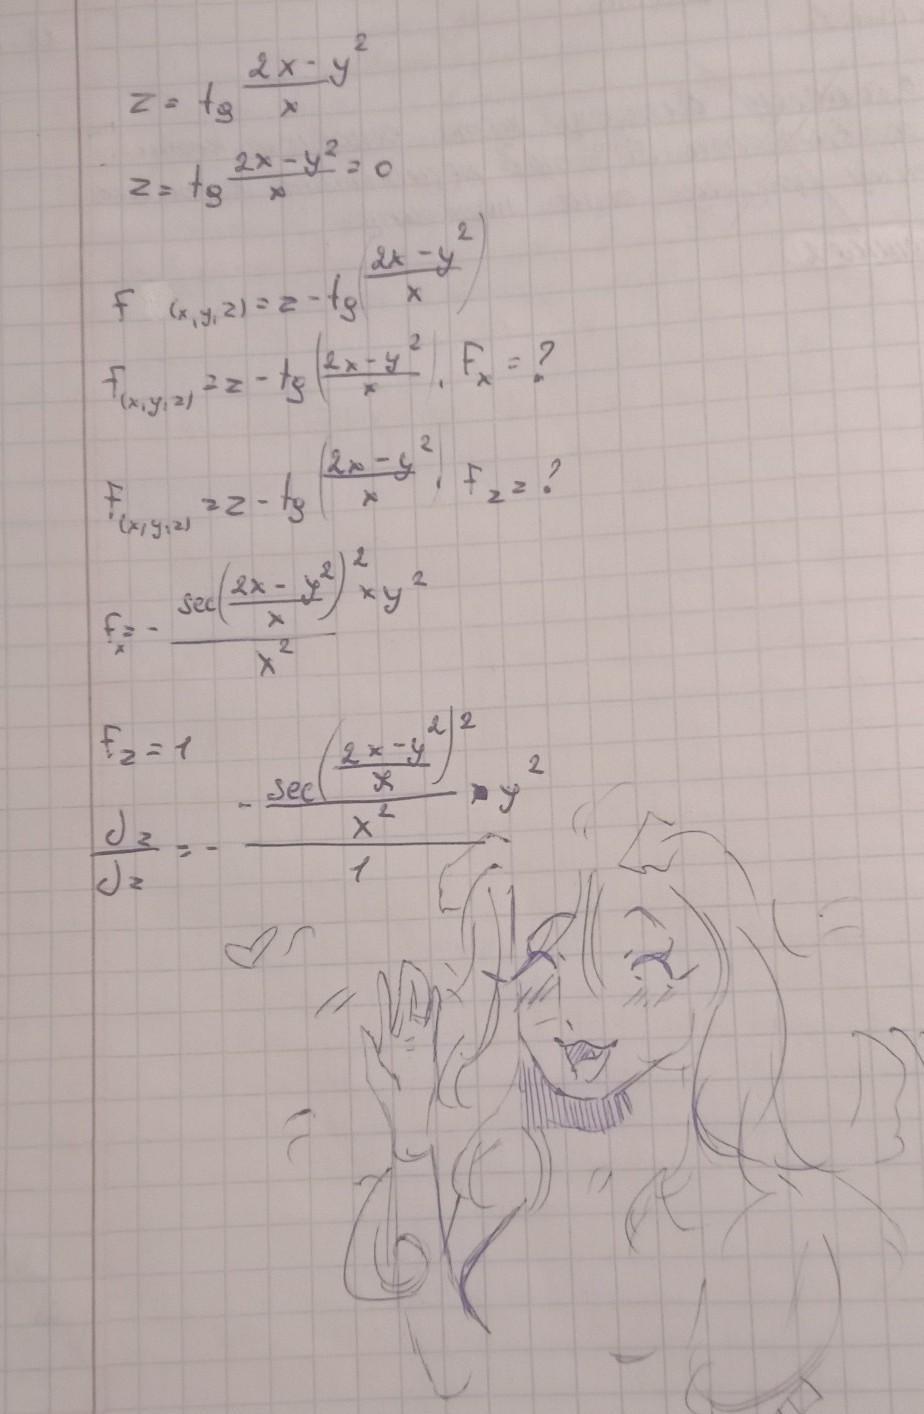 z = tg (2x - y²)/x
z = tg (2x - y²)/x = 0
F (x,y,z) = z - tg((2x - y²)/x)
F(x,y,z) = z - tg((2x - y²)/x), Fx = ?
F(x,y,z) = z - tg((2x - y²)/x), Fz = ?
Fx = - (sec((2x - y²)/x)² × y²)/x²
Fz = 1
∂z/∂z = - (- sec((2x - y²)/x)²/x² · y²)/1